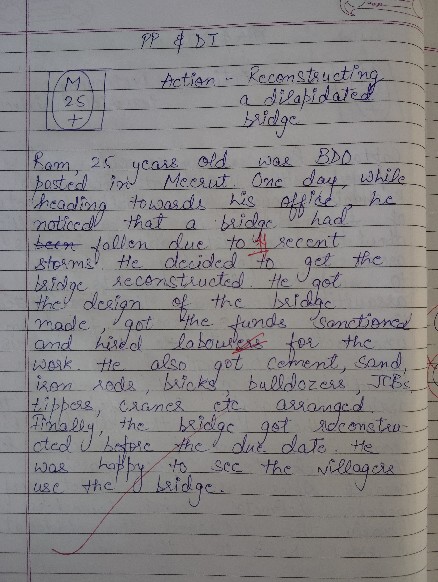 PP & DI
M
25
+
Action - Reconstructing
a dilapidated
bridge
Ram, 25 years old was BDO
posted in Meerut. One day, while
heading towards his office, he
noticed that a bridge had
been fallen due to recent
storms. He decided to get the
bridge reconstructed. He got
the design of the bridge
made, got the funds sanctioned
and hired labourers for the
work. He also got cement, sand,
iron rods, bricks, bulldozers, JCBs,
tippers, cranes etc arranged.
Finally, the bridge got reconstru-
cted before the due date. He
was happy to see the villagers
use the bridge.